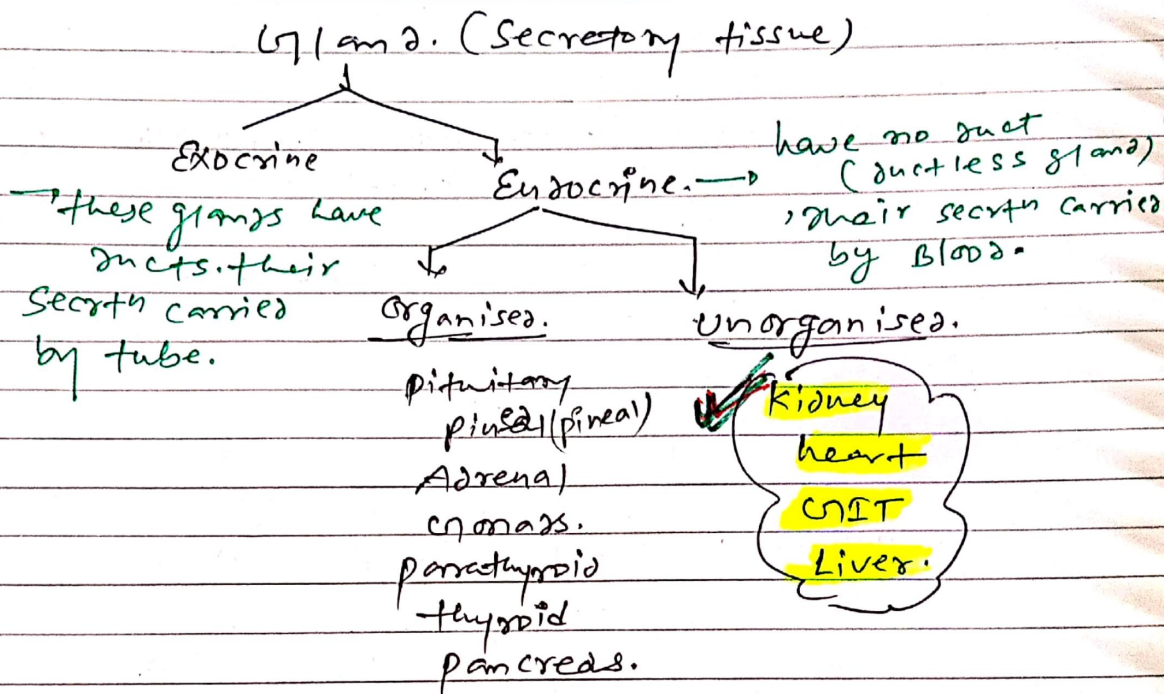 Gland. (Secretory tissue)
Exocrine
→ these glands have
ducts. their
Secrtn carried
by tube.
Endocrine. →
have no duct
(ductless gland)
, their secrtn carried
by Blood.
Organised.
pituitary
pineal (pineal)
Adrenal
Gonads.
parathyroid
thyroid
pancreas.
Unorganised.
Kidney
heart
GIT
Liver.